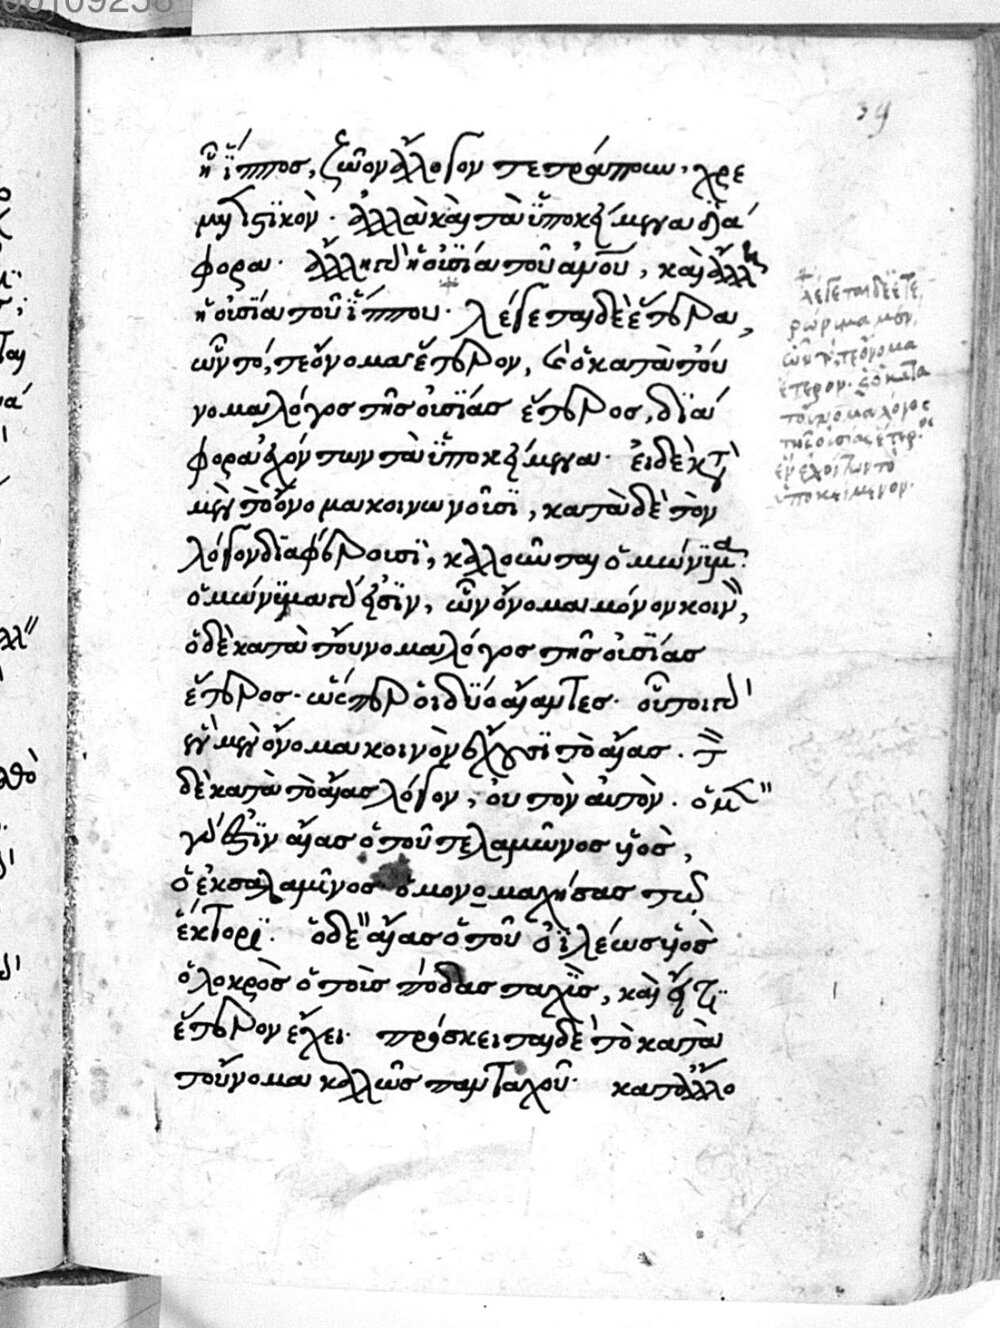 39
ἢ ἵππος, ζῶον ἄλογον τετράπουν, χρε
μητιστικόν. ἀλλὰ καὶ τὰ ὑποκείμενα διά
φορα. ἄλλη γὰρ ἡ οὐσία τοῦ ἀνοῦ, καὶ ἄλλη
ἡ οὐσία τοῦ ἵππου. λέγεται δὲ ἕτερα,
ὧν τό, τε ὄνομα ἕτερον, καὶ ὁ κατὰ τοὔ
νομα λόγος τῆς οὐσίας ἕτερος, διά
φορα ἐχόντων τὰ ὑποκείμενα. εἰ δὲ κατὰ
μὲν τὸ ὄνομα κοινωνοῦσι, κατὰ δὲ τὸν
λόγον διαφέρουσι, καλοῦνται ὁμώνυμα.
ὁμώνυμα γάρ εἰσιν, ὧν ὄνομα μόνον κοινὸν,
ὁ δὲ κατὰ τοὔνομα λόγος τῆς οὐσίας
ἕτερος. ὥσπερ οἱ δύο αἴαντες. οὗτοι γὰρ
ἓν μὲν ὄνομα κοινὸν ἔχουσι τὸ αἴας. τὸν
δὲ κατὰ τὸ αἴας λόγον, οὐ τὸν αὐτόν. ὁ μὲν
γάρ ἐστιν αἴας ὁ τοῦ τελαμῶνος υἱὸς,
ὁ ἐκ σαλαμῖνος ὁ μονομαχήσας τῷ
ἕκτορι. ὁ δὲ αἴας ὁ τοῦ ὀϊλέως υἱὸς
ὁ λοκρὸς ὁ τοῖς πόδας ταχὺς, καὶ εἴ τι
ἕτερον ἔχει. πρόσκειται δὲ τὸ κατὰ
τοὔνομα καλῶς πανταχοῦ. κατ' ἄλλο
λέγεται δὲ ἕτε
ρώνυμα μὲν,
ὧν τό, τε ὄνομα
ἕτερον. καὶ ὁ κατὰ
τοὔνομα λόγος
τῆς οὐσίας ἕτερος
ἓν ἐχόντων τὸ
ὑποκείμενον.